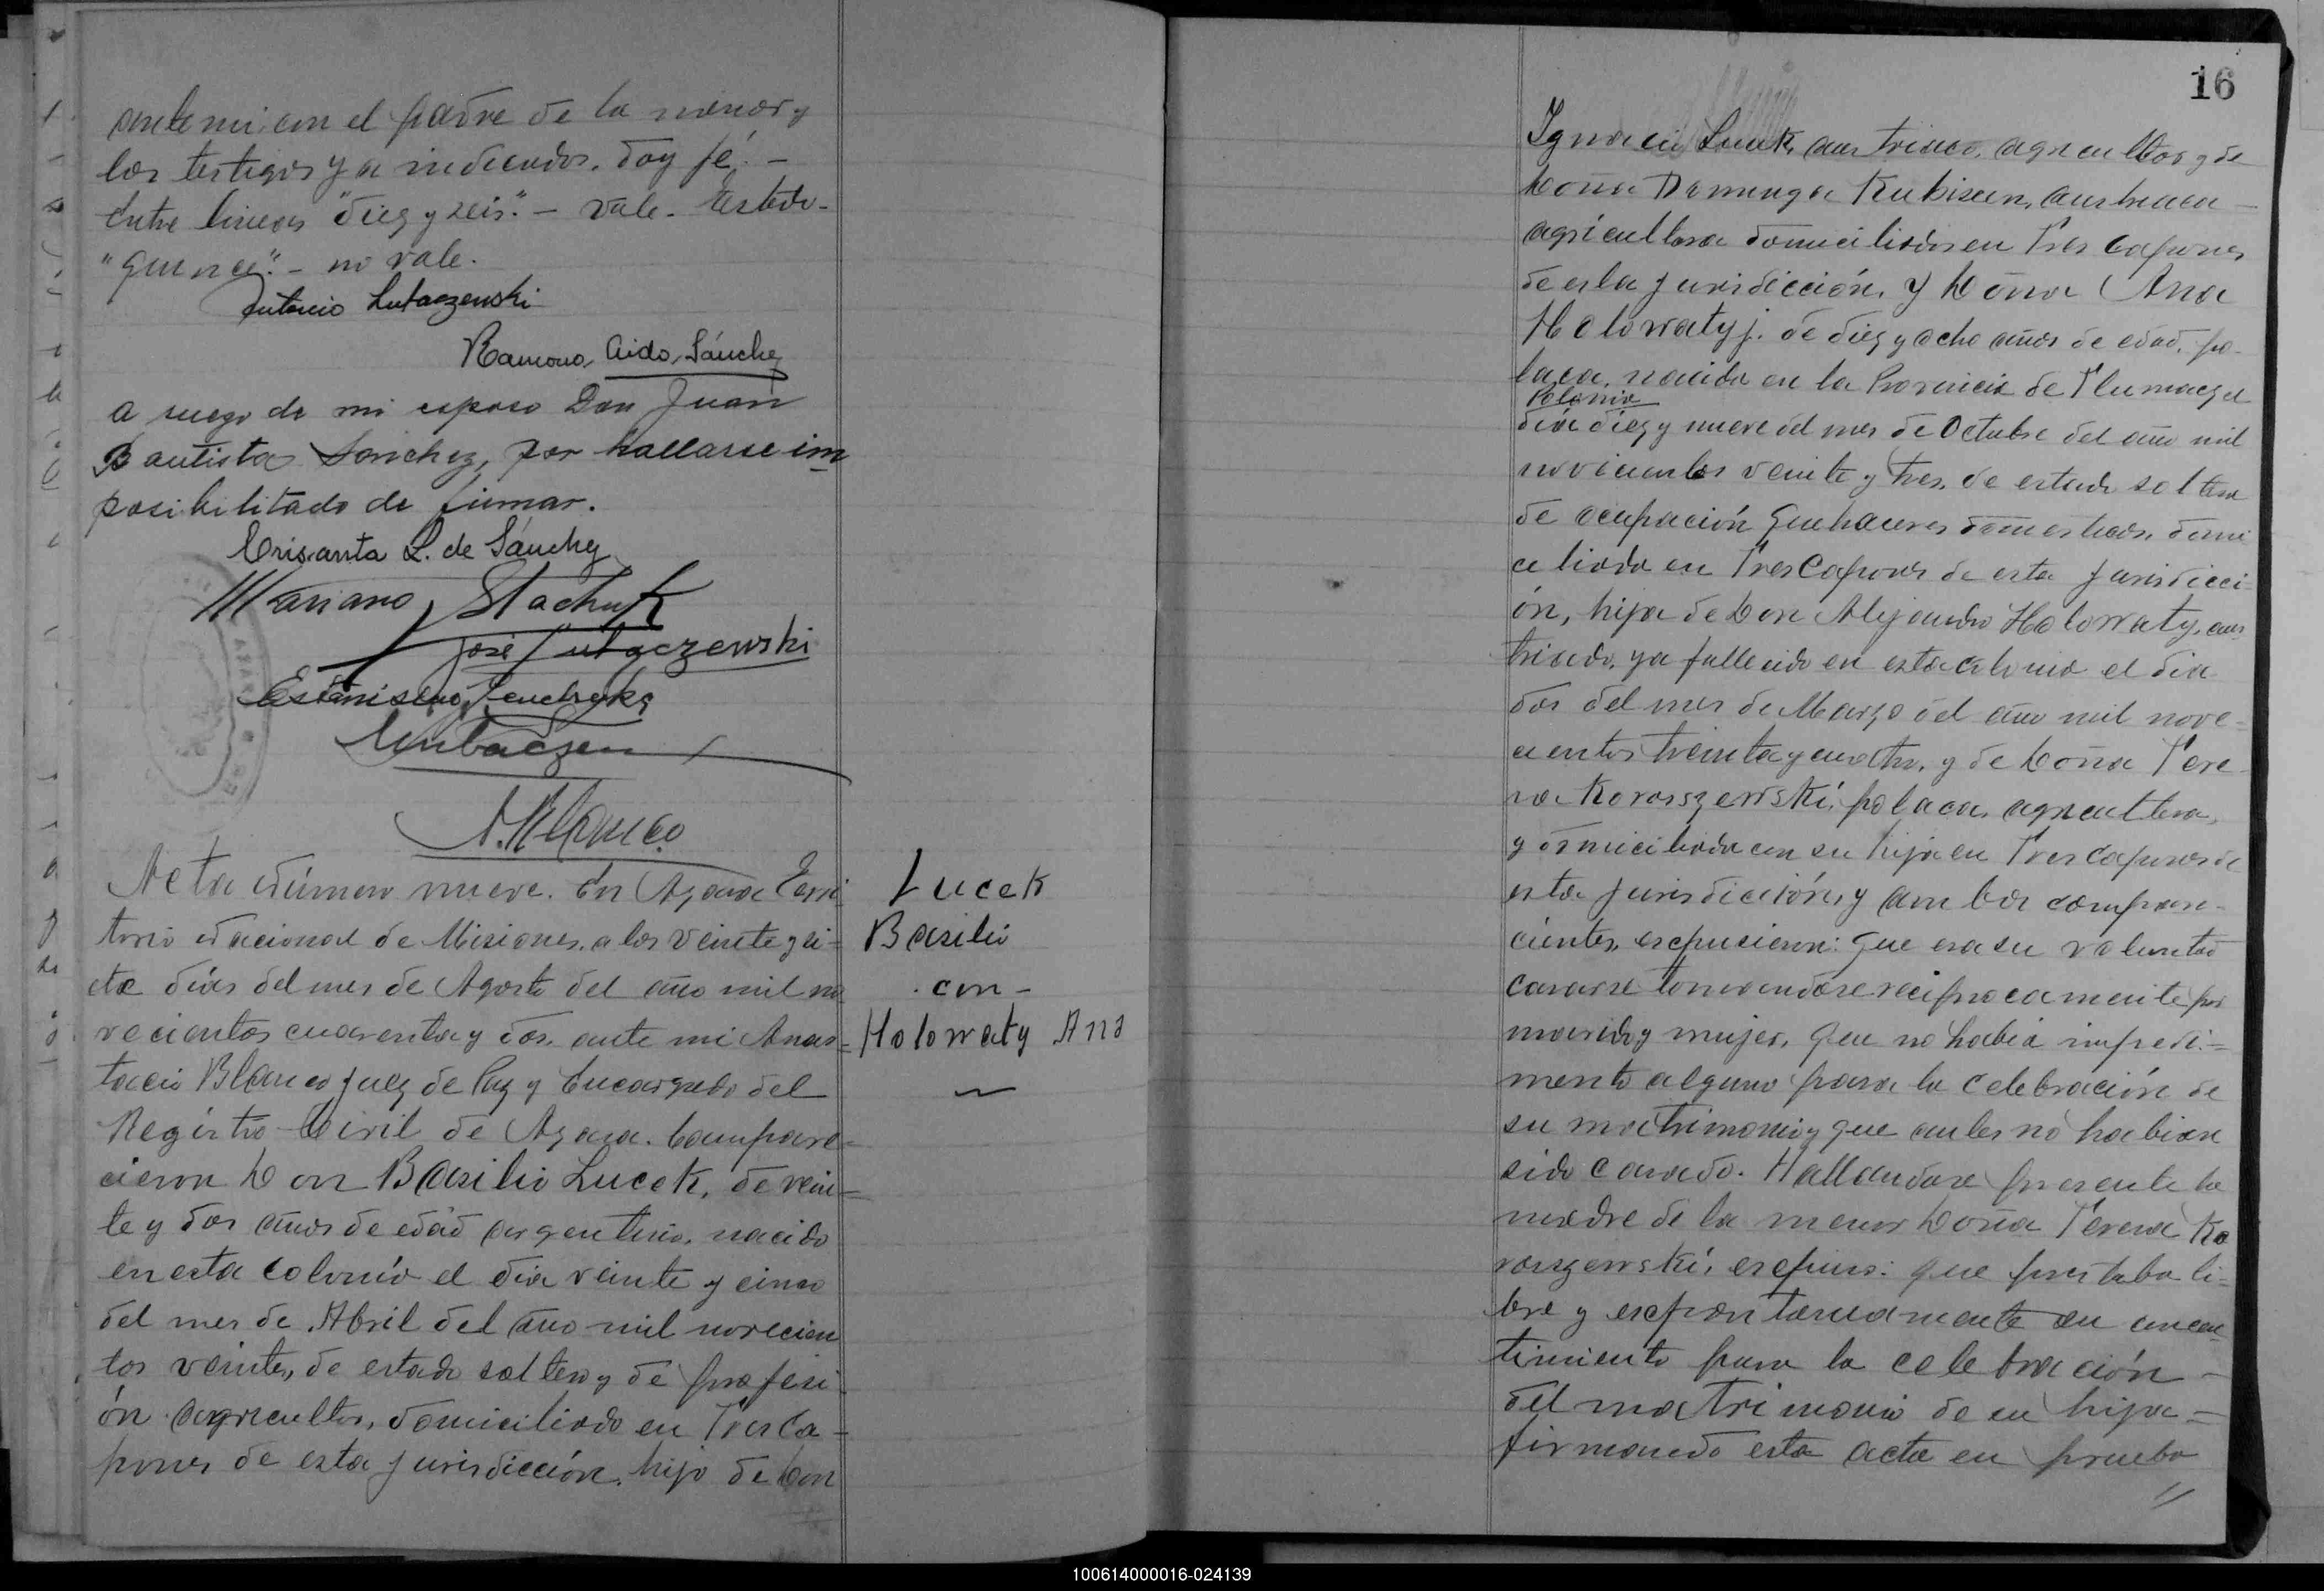 ante mi con el padre de la menor y
los testigos ya indicados. doy fé. -
Entre lineas "diez y seis". - vale. Testado -
"quince". - no vale.
Antonio Lutaczewski
Ramona Aida Sánchez
a ruego de mi esposo Don Juan
Bautista Sanchez, por hallarse im
posibilitado de firmar.
Crisanta L. de Sánchez
Mariano Stachuk
José Lutaczewski
Estanislao
A. Blanco
Acta número nueve. En Azara Terri
torio Nacional de Misiones, a los veinte y si=
ete días del mes de Agosto del año mil no
vecientos cuarenta y dos, ante mi Anas=
tacio Blanco Juez de Paz y Encargado del
Registro Civil de Azara. Compare=
cieron Don Basilio Lucek, de vein=
te y dos años de edad argentino, nacido
en esta colonia el día veinte y cinco
del mes de Abril del año mil novecien
tos veinte, de estado soltero y de profesi
ón agricultor, domiciliado en Tres Ca-
pones de esta jurisdicción, hijo de Don
Lucek
Basilio
. con -
Holowaty Ana
16
Ignacio Lucek, austriaco, agricultor y de
Doña Dominga Kubiszen, austriaca -
agricultora domiciliados en Tres Capones
de esta jurisdicción, Y Doña Ana
Holowaty j. de diez y ocho años de edad, po-
laca, nacida en la Provincia de Tlumacz el
Polonia
día diez y nueve del mes de Octubre del año mil
novicientos veinte y tres, de estado soltera
de ocupación quehaceres domesticos, domi
ciliada en Tres Capones de esta jurisdicci-
ón, hija de Don Alejandro Holowaty, aus
triaco, ya fallecido en esta colonia el dia
dos del mes de Marzo del año mil nove-
cientos treinta y cuatro, y de Doña Tere
sa Koroszewski, polaca, agricultora,
y domiciliada con su hija en Tres Capones de
esta jurisdicción, y ambos compare-
cientes, expusieron: que era su voluntad
casarse tomandose reciprocamente por
marido y mujer, que no habia impedi-
mento alguno para la celebración de
su matrimonio y que antes no habian
sido casado. Hallandose presente la
madre de la menor Doña Teresa Ko
roszewski, expuso: que prestaba li-
bre y expontaneamente su concen
timiento para la celebración -
del matrimonio de su hija -
firmando esta acta en prueba
100614000016-024139